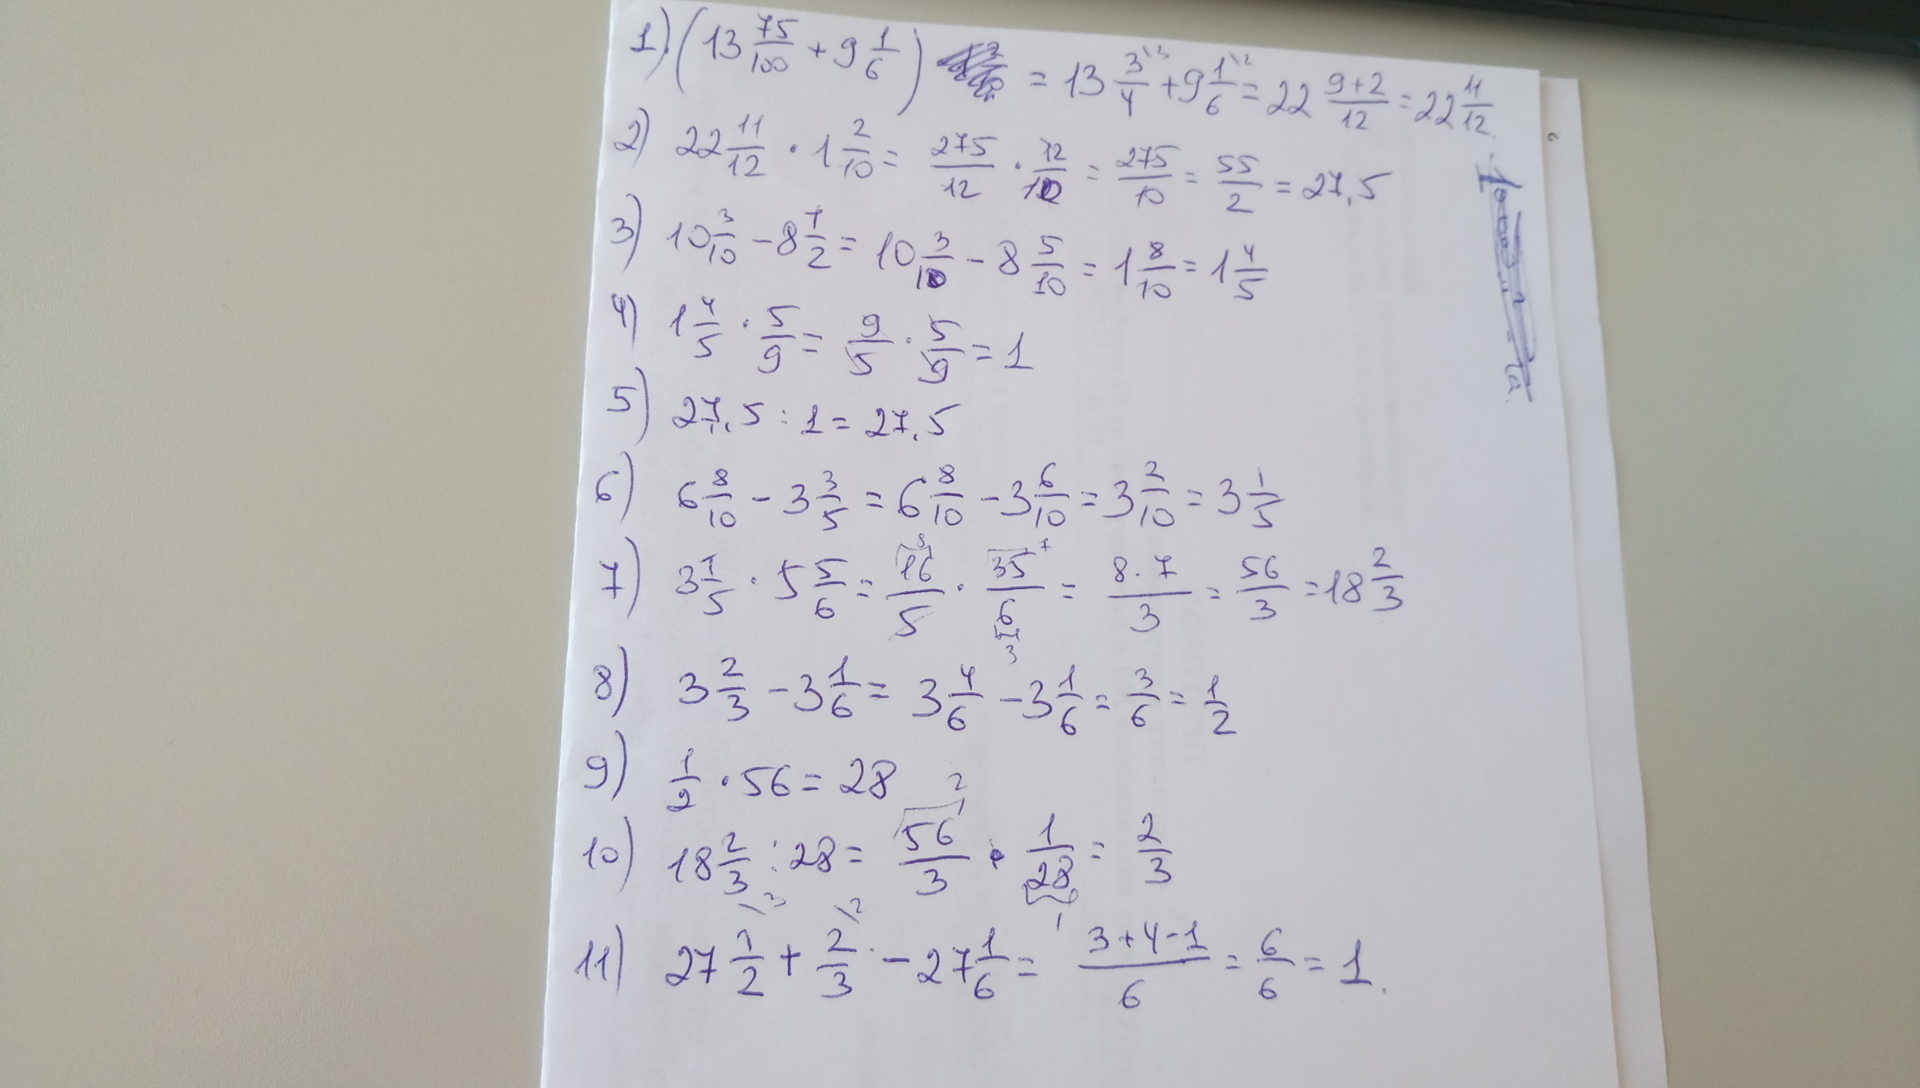 1) (13 75/100 + 9 1/6) = 13 3/4 \3 + 9 1/6 \2 = 22 9+2/12 = 22 11/12.
2) 22 11/12 · 1 2/10 = 275/12 · 12/10 = 275/10 = 55/2 = 27,5
3) 10 3/10 - 8 1/2 = 10 3/10 - 8 5/10 = 1 8/10 = 1 4/5
4) 1 4/5 · 5/9 = 9/5 · 5/9 = 1
5) 27,5 : 1 = 27,5
6) 6 8/10 - 3 3/5 = 6 8/10 - 3 6/10 = 3 2/10 = 3 1/5
7) 3 1/5 · 5 5/6 = 16 8/5 · 35 7/6 3 = 8·7/3 = 56/3 = 18 2/3
8) 3 2/3 - 3 1/6 = 3 4/6 - 3 1/6 = 3/6 = 1/2
9) 1/2 · 56 = 28
10) 18 2/3 : 28 = 56 2/3 · 1/28 1 = 2/3
11) 27 1/2 \3 + 2/3 \2 - 27 1/6 = 3+4-1/6 = 6/6 = 1.